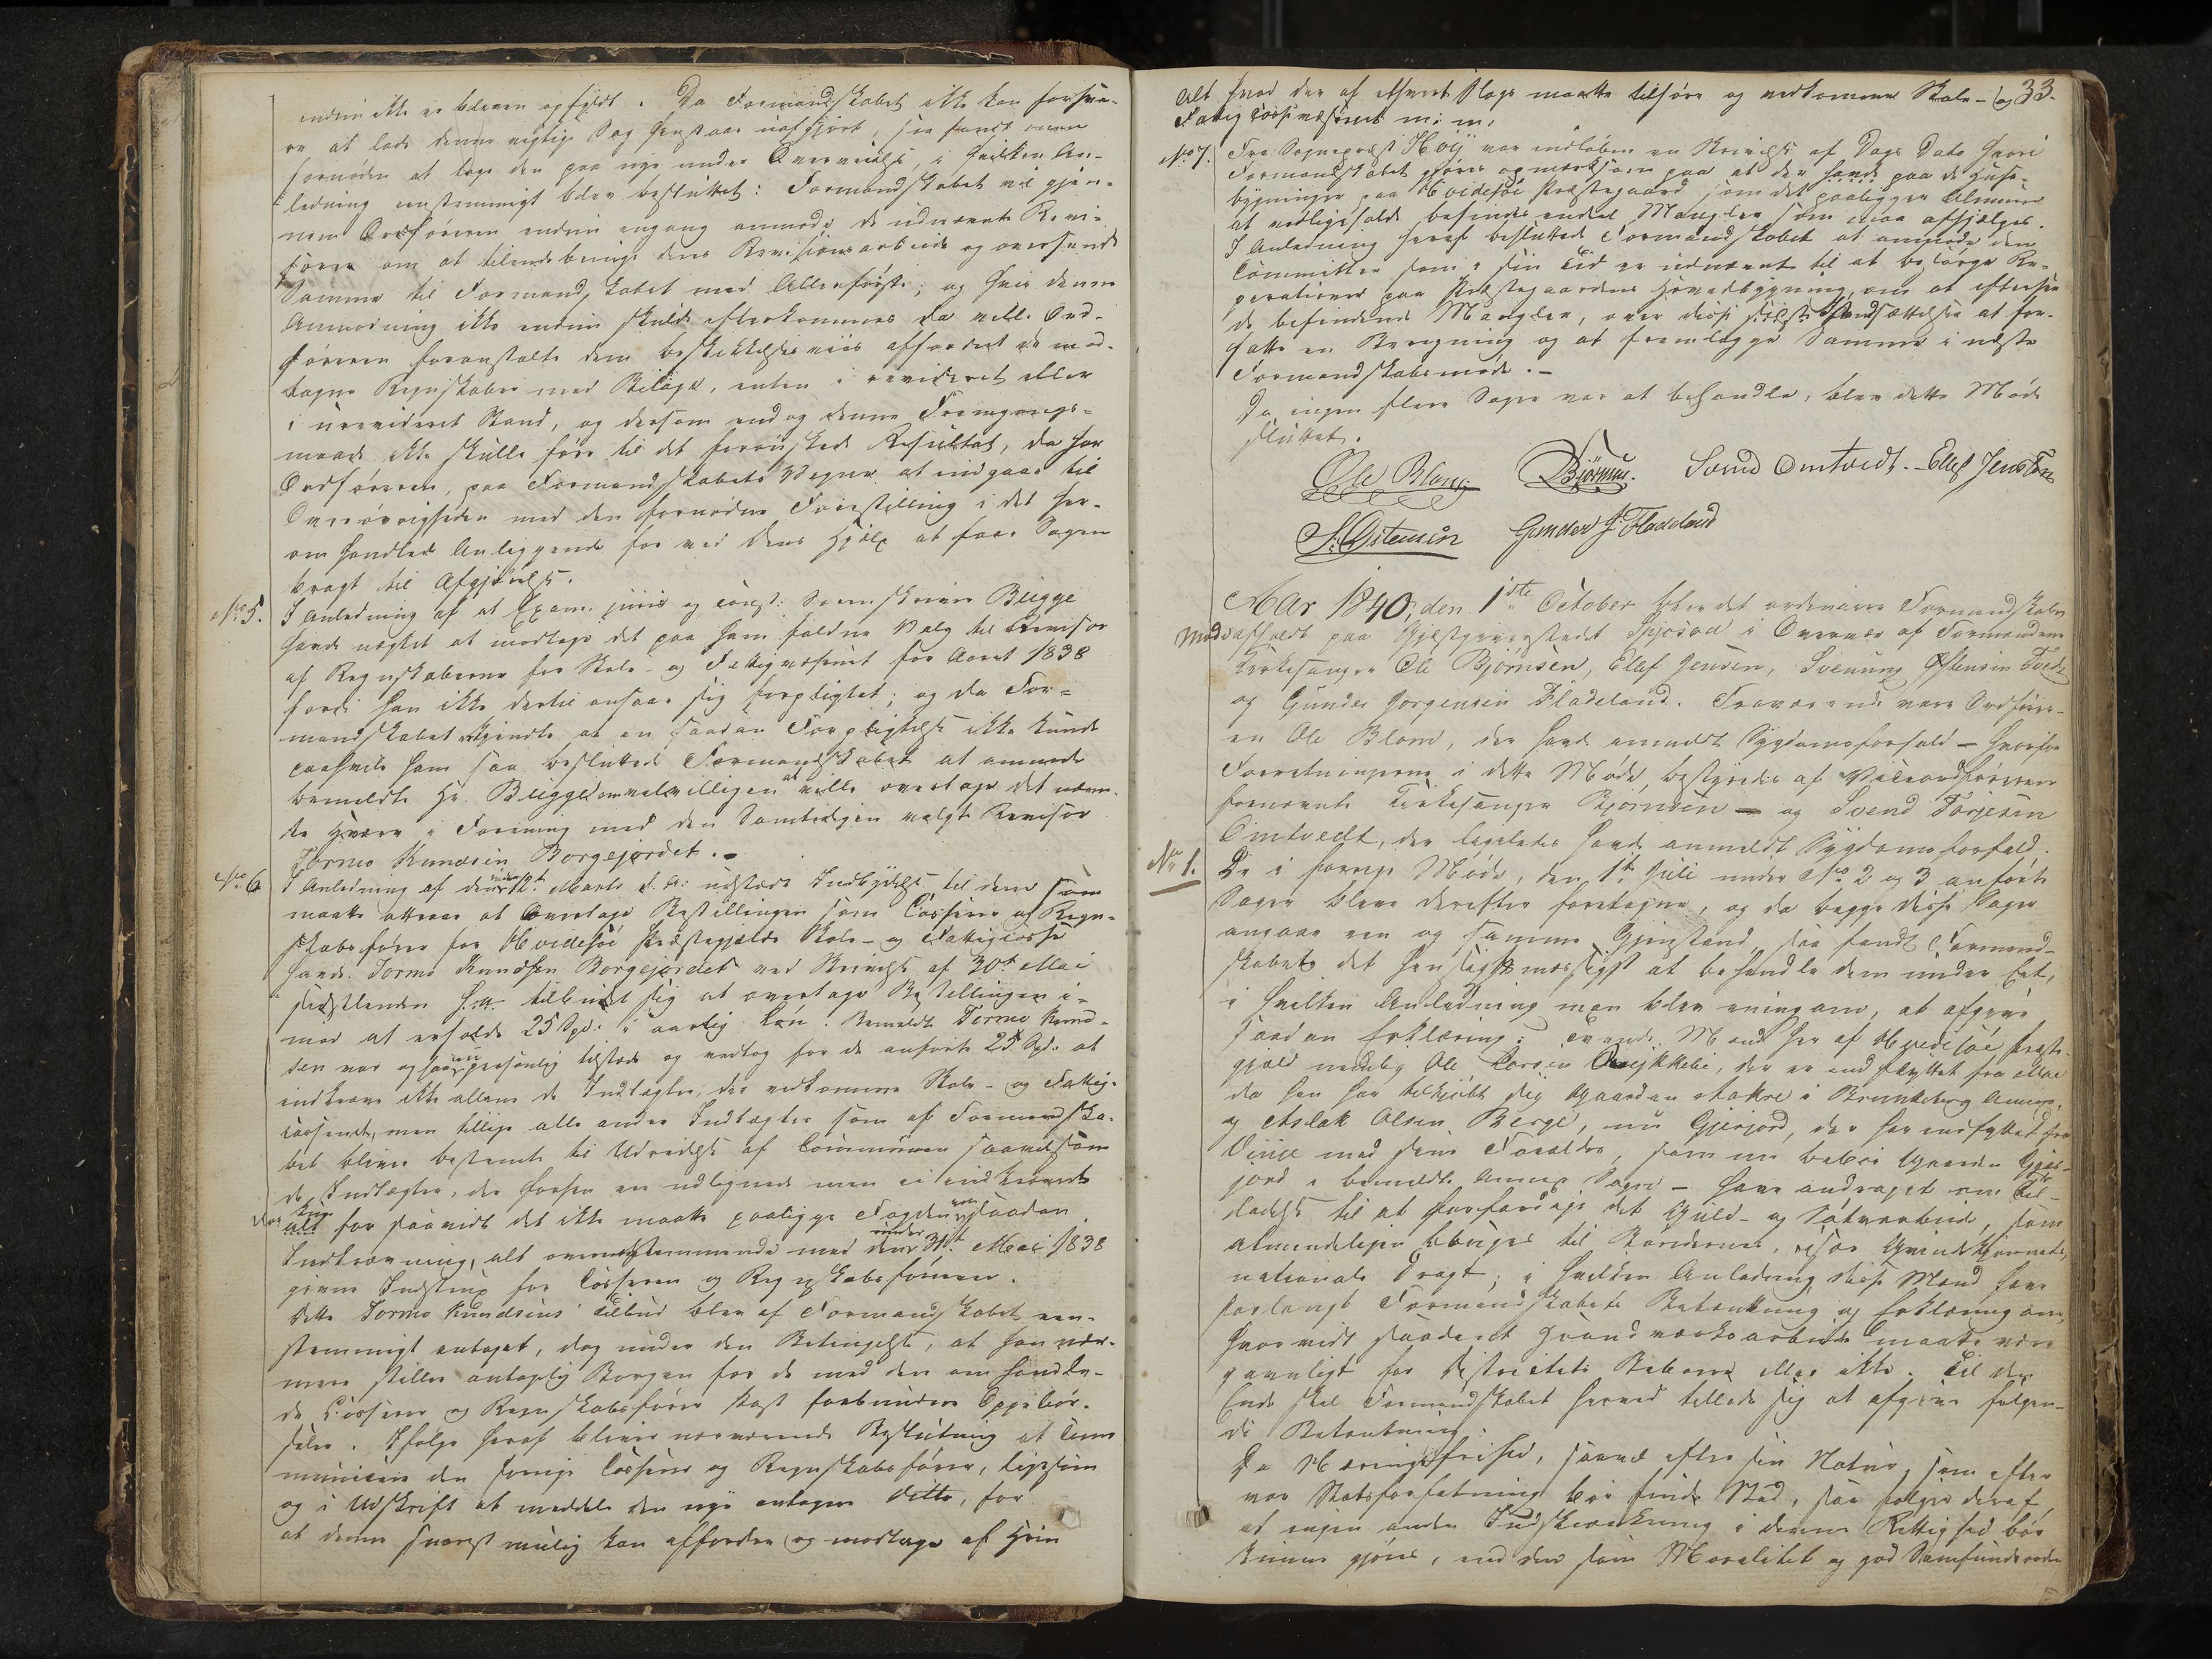 endnu ikke er bleven opfyldt. Da Formandskabet ikke kan forsva-
re at lade denne vigtige Sag henstaae uafgjort, saa fandt man
fornøden at tage den paa nye under Overveielse, i hvilken An-
ledning eenstemmigt blev besluttet: Formandskabet vil gjen-
nem Ordføreren endnu engang anmode de udnævnte Revi-
sorer om at tilendebringe deres Revisionsarbeide og oversende
Samme til Formandskabet med Allerførste; og hvis denne
Anmodning ikke endnu skulde efterkommes da ville Ord-
føreren foranstalte dem beskikkelsesviis affordret de mod-
tagne Regnskaber med Bilage, enten i revideret eller
i urevideret Stand, og dersom endog denne Fremgangs-
maade ikke skulle føre til det forønskede Resultat, da har
Ordføreren, paa Formandskabets Vegne at indgaae til
Overøvrigheden med den fornødne Forestilling i det her-
om handlede Anliggende for ved dens Hjelp at faae Sagen
bragt til Afgjørelse.
No 5. I Anledning af at Exam. juris og const: Sorenskriver Bügge
havde nægtet at modtage det paa ham faldne Valg til Revisor
af Regnskaberne for Skole- og Fattigvæsenet for Aaret 1838
fordi han ikke dertil ansaae sig forpligtet; og da For-
mandskabet erkjendte at en saadan Forpligtelse ikke kunde
paahvile ham saa besluttede Formandskabet at anmode
bemeldte Hr. Bügge om velvilligen at ville overtage det nævn-
te Hverv i Forening med den Samtidigen valgte Revisor
Tormo Knudsen Borgejordet.
No 6 I Anledning af den under 12te Marts d. A. udstædte Indbydelse til dem som
maatte attraae at Overtage Bestillingen som Casserer og Regn-
skabsfører for Hvidesøe Præstegjælds Skole- og Fattigcasse
havde Tormo Knudsen Borgejordet ved Skrivelse af 30te Mai
sidstleden tilbudt sig at overtage Bestillingen i-
mod at erholde 25 Spd: i aarlig Løn. Bemeldte Tormo Knud-
sen var ogsaa nu personlig tilstede og vedtog for de anførte 25 Spd. at
indkræve ikke allene de Indtægter, der vedkomme Skole- og Fattig-
cassene, men tillige alle andre Indtægter som af Formandska-
bet bliver bestemt til Udredelse af Communen saavelsom
de Indtægter, der forhen ere udlignede men ei indkrævede
alt for saavidt det ikke maatte paaligge Fogden saadan
Indkrævning, alt overensstemmende med den under 31te Mai 1838
givne Instrux for Casserer og Regnskabsføreren.
Dette Tormo Knudsens Tilbud blev af Formandskabet een-
stemmigt antaget, dog under den Betingelse, at han nær-
mere stiller antagelig Borgen for de med den omhandle-
de Casserer og Regnskabsfører Post forbundne Oppebør-
seler. Ifølge heraf bliver nærværende Beslutning at Com-
municere den forrige Casserer og Regnskabsfører, ligesom
og i Udskrift at meddele den nye antagne Ditto, for
at denne snarest mulig kan affordre og modtage af Hiin
33.
Alt hvad der af ethvert Slags maatte tilhøre og vedkomme Skole- og
Fattigcassevæsenet m: m:
No 7. Fra Sognepræst Höÿ var indløben en Skrivelse af Dags Dato hvori
Formandskabet gjøres opmærksom paa at der paa de Huse-
bygninger paa Hvidesøe Præstegaard som det paaligger Almuen
at vedligeholde befindes endeel Mangler som maa afhjælpes.
I Anledning heraf besluttede Formandskabet at anmode den
Committee som i sin Tid er udnævnt til at besørge Re-
parationer paa Præstegaardens Hovedbygning, om at efterse
de befindende Mangler, over disses Istandsættelse at for-
fatte en Beregning og at fremlægge Samme i næste
Formandskabsmøde.
Da ingen flere Sager var at behandle, blev dette Møde
sluttet.
Ole Blom Björnsen. Svend Omtvedt Ellef Jensen
S. Østensen Gunder J. Fladeland
Aar 1840, den 1ste October blev det ordinaire Formandskabs
Møde afholdt paa Gjæstgiverstedet Spjosod i Overvær af Formændene
Kirkesanger Ole Bjørnsen, Ellef Jensen, Svenung Østensen Tvedt
og Gunder Jørgensen Fladeland. Fraværende vare Ordføre-
ren Ole Blom, der havde anmeldt Sygdomsforfald – hvorfor
Forretningerne i dette Møde bestyredes af Viceordføreren
fornævnte Kirkesanger Bjørnsen – og Svend Torjesen
Omtvedt, der ligeledes havde anmeldt Sygdomsforfald.
No 1. De i forrige Møde, den 1te Juli under No 2 og 3 anførte
Sager bleve derefter foretagne, og da begge disse Sager
angaae een og samme Gjenstand, saa fandt Formand-
skabet det hensigtsmæssigst at behandle dem under Eet,
i hvilken Anledning man blev enig om, at afgive
saadan Erklæring: Tvende Mænd her af Hvidesøe Præste-
gjæld nemlig Ole Larsen, der er indflyttet fra Moe
da han har tilkjøbt sig Gaarden Aakre i Brunkeberg Annex,
og Aslak Olsen Berge, nu Gjerjord, der har indflyttet fra
Vinje med sine Forældre, som nu beboe Gaarden Gjer-
jord i bemeldte Annex Sogn – have andraget om Til-
ladelse til at forfærdige det Guld- og Sølvarbeide, som
almindeligen bruges til Bøndernes, især Qvindekjønnets,
nationale Dragt; i hvilken Anledning disse Mænd have
forlangt Formandskabets Betænkning og Erklæring om,
hvorvidt saadant Haandværksarbeide maatte være
gavnligt for Districtets Beboere eller ikke. Til den
Ende skal Formandskabet herved tillade sig at afgive følgen-
de Betænkning:
Da Næringsfrihed, saavel efter sin Natur, som efter
vor Statsforfatning bør finde Sted, saa følger deraf,
at ingen anden Indskrænkning i denne Rettighed bør
kunne gjøres, end den som Moralitet og god Samfundsorden